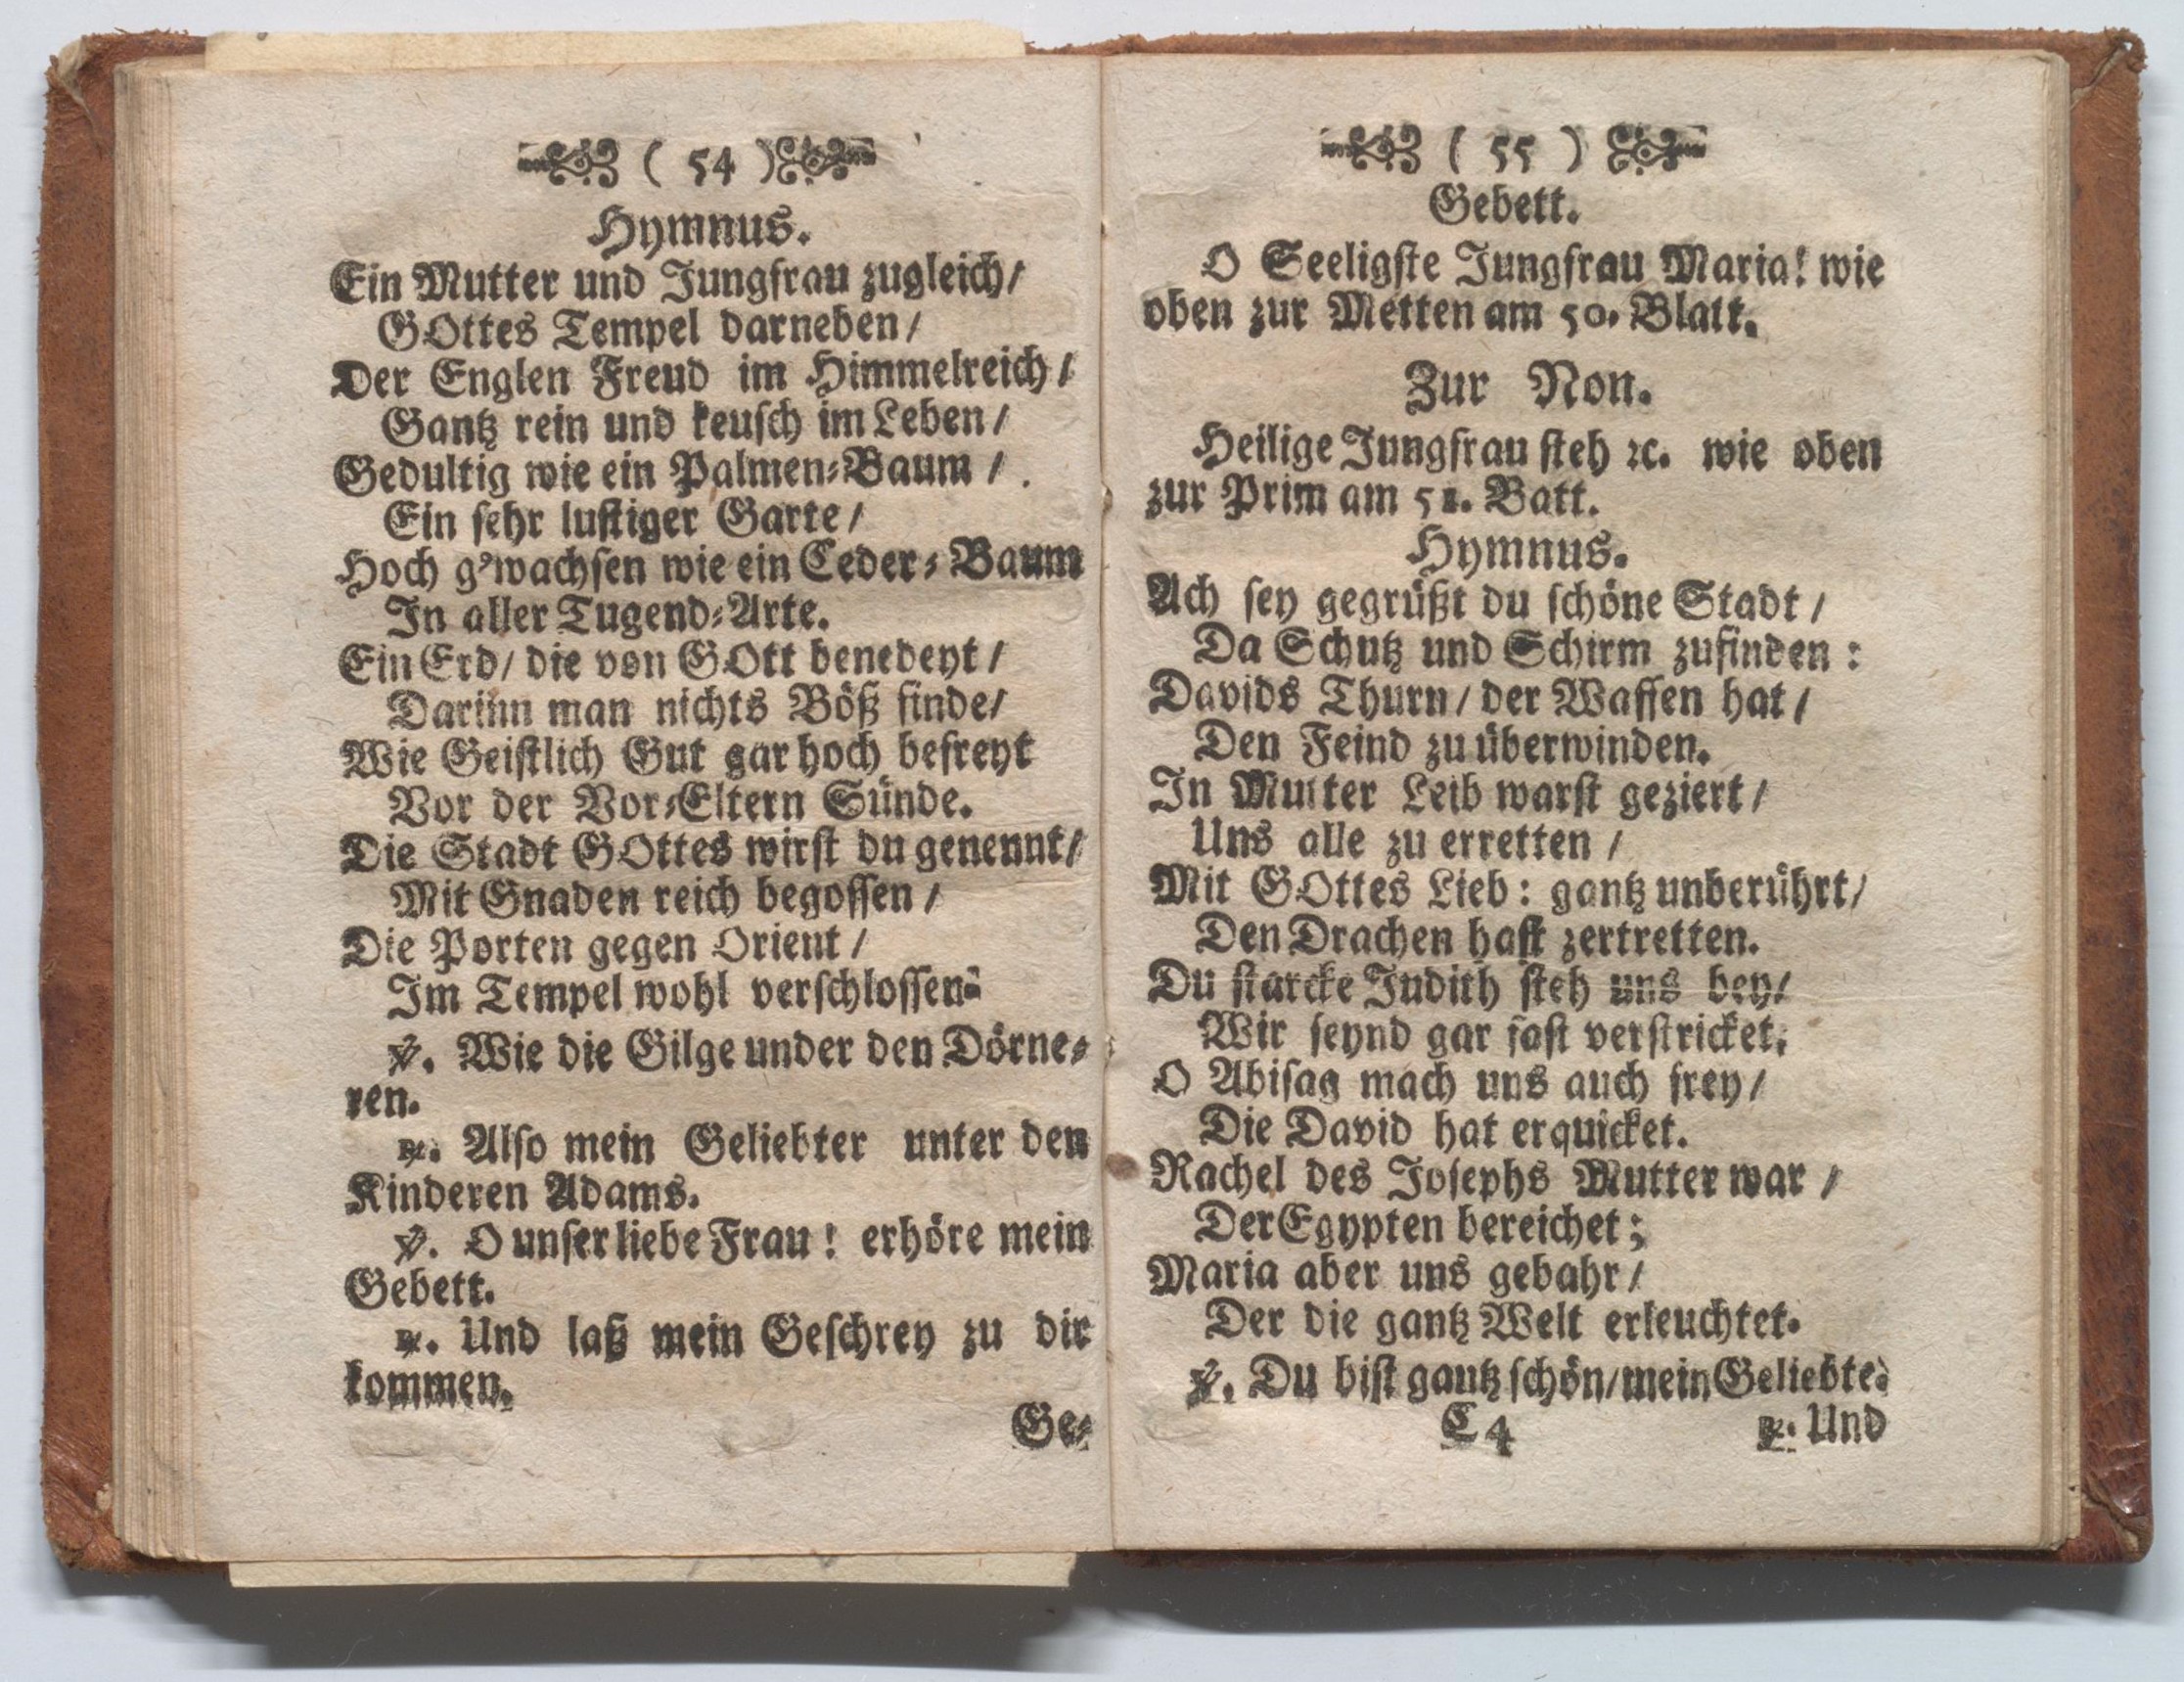 ( 54 )
Hymnus.
Ein Mutter und Jungfrau zugleich/
GOttes Tempel darneben/
Der Englen Freud im Himmelreich/
Gantz rein und keusch im Leben/
Gedultig wie ein Palmen-Baum/.
Ein sehr lustiger Garte/
Hoch g'wachsen wie ein Ceder-Baum
In aller Tugend-Arte.
Ein Erd/ die von GOtt benedeyt/
Darinn man nichts Böß finde/
Wie Geistlich Gut gar hoch befreyt
Vor der Vor-Eltern Sünde.
Die Stadt GOttes wirst du genennt/
Mit Gnaden reich begossen/
Die Porten gegen Orient/
Im Tempel wohl verschlossen.
℣. Wie die Gilge under den Dörne-
ren.
℟. Also mein Geliebter unter den
Kinderen Adams.
℣. O unser liebe Frau! erhöre mein
Gebett.
℟. Und laß mein Geschrey zu dir
kommen.
Ge-
( 55 )
Gebett.
O Seeligste Jungfrau Maria! wie
oben zur Metten am 50. Blatt.
Zur Non.
Heilige Jungfrau steh ꝛc. wie oben
zur Prim am 51. Batt.
Hymnus.
Ach sey gegrüßt du schöne Stadt/
Da Schutz und Schirm zufinden:
Davids Thurn/ der Waffen hat/
Den Feind zu überwinden.
In Mutter Leib warst geziert/
Uns alle zu erretten/
Mit GOttes Lieb: gantz unberührt/
Den Drachen hast zertretten.
Du starcke Judith steh uns bey/
Wir seynd gar fast verstricket;
O Abisag mach uns auch frey/
Die David hat erquicket.
Rachel des Josephs Mutter war/
Der Egypten bereichet;
Maria aber uns gebahr/
Der die gantz Welt erleuchtet.
℣. Du bist gantz schön/mein Geliebte.
C 4 ℟. Und